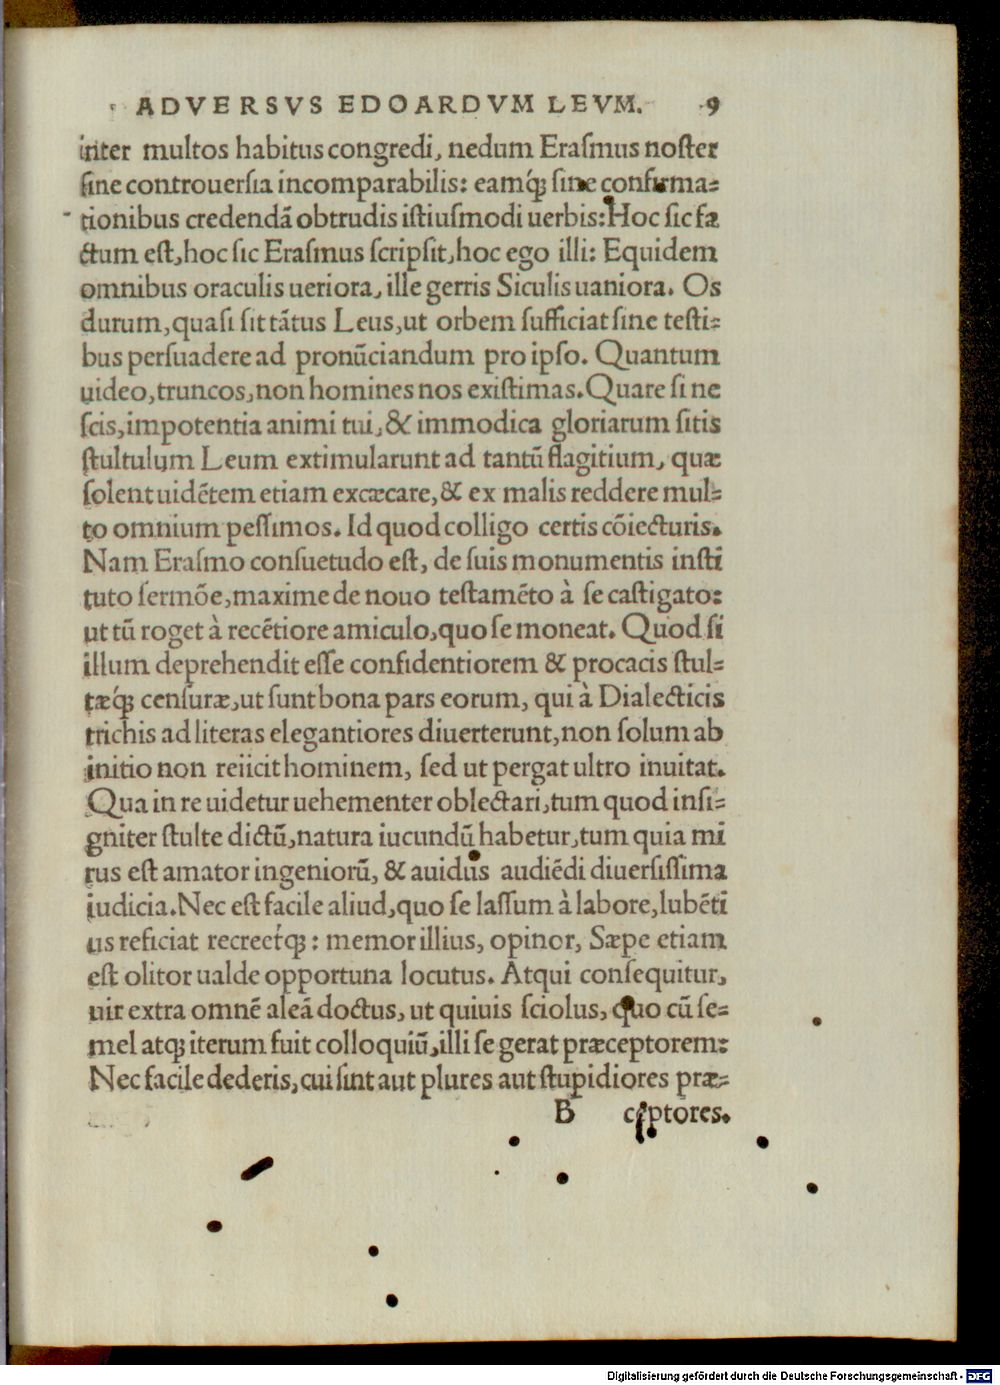 ADVERSVS EDOARDVM LEVM. 9
inter multos habitus congredi, nedum Eraſmus noſter
ſine controuerſia incomparabilis: eamq́ꝫ ſine confirma=
tionibus credendā obtrudis iſtiuſmodi uerbis: Hoc ſic fa
ctum eſt, hoc ſic Eraſmus ſcripſit, hoc ego illi: Equidem
omnibus oraculis ueriora, ille gerris Siculis uaniora. Os
durum, quaſi ſit tātus Leus, ut orbem ſufficiat ſine teſti=
bus perſuadere ad pronūciandum pro ipſo. Quantum
uideo, truncos, non homines nos exiſtimas. Quare ſi ne
ſcis, impotentia animi tui, & immodica gloriarum ſitis
ſtultulum Leum extimularunt ad tantū flagitium, quæ
ſolent uidētem etiam excæcare, & ex malis reddere mul=
to omnium peſſimos. Id quod colligo certis cōiecturis.
Nam Eraſmo conſuetudo eſt, de ſuis monumentis inſti
tuto ſermōe, maxime de nouo teſtamēto à ſe caſtigato:
ut tū roget à recētiore amiculo, quo ſe moneat. Quod ſi
illum deprehendit eſſe confidentiorem & procacis ſtul=
tæq́ꝫ cenſuræ, ut ſunt bona pars eorum, qui à Dialecticis
trichis ad literas elegantiores diuerterunt, non ſolum ab
initio non reiicit hominem, ſed ut pergat ultro inuitat.
Qua in re uidetur uehementer oblectari, tum quod inſi=
gniter ſtulte dictū, natura iucundū habetur, tum quia mi
rus eſt amator ingeniorū, & auidus audiēdi diuerſiſſima
iudicia. Nec eſt facile aliud, quo ſe laſſum à labore, lubēti
us reficiat recreetq́ꝫ: memor illius, opinor, Sæpe etiam
eſt olitor ualde opportuna locutus. Atqui conſequitur,
uir extra omnē aleā doctus, ut quiuis ſciolus, quo cū ſe=
mel atqꝫ iterum fuit colloquiū, illi ſe gerat præceptorem:
Nec facile dederis, cui ſint aut plures aut ſtupidiores præ=
B ceptores.
Digitalisierung gefördert durch die Deutsche Forschungsgemeinschaft - DFG